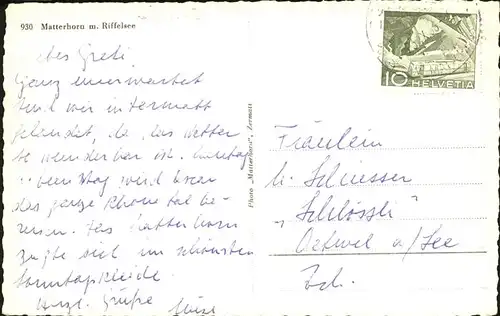 930 Matterhorn m. Riffelsee
Liebes Greti,
Ganz unerwartet
sind wir in Zermatt
gelandet, da das Wetter
so wunderbar ist.
wird
das ganze Rhonetal be-
reisen. Das Matterhorn
zeigte sich im schönsten
Sonntagskleide.
Herzl. Grüße
Photo „Matterhorn“, Zermatt
10 HELVETIA
Fräulein
„Schlössli“
Oetwil a/See
Zch.